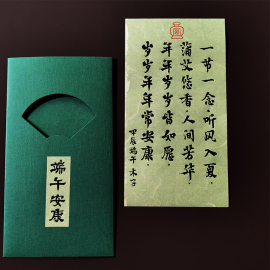 一节一念，听风入夏，
蒲艾悠香，人间芳华，
年年岁岁皆如愿，
岁岁年年常安康，
甲辰端午 木子
端午安康